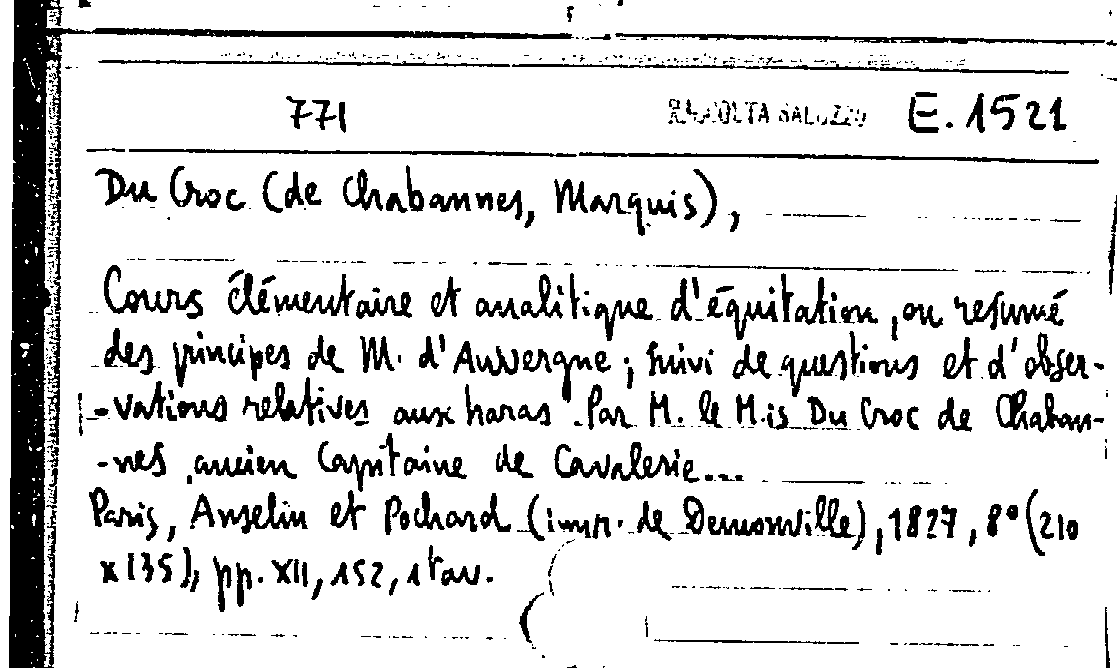 771 RACCOLTA SALUZZO E. 1521
Du Croc (de Chabannes, Marquis),
Cours élémentaire et analitique d'équitation, ou resumé
des principes de M. d'Auvergne; suivi de questions et d'obser-
-vations relatives aux haras. Par M. le M.is Du Croc de Chaban-
-nes ancien Capitaine de Cavalerie...
Paris, Anselin et Pochard (impr. de Demonville), 1827, 8° (210
x 135), pp. XII, 152, 1 tav.